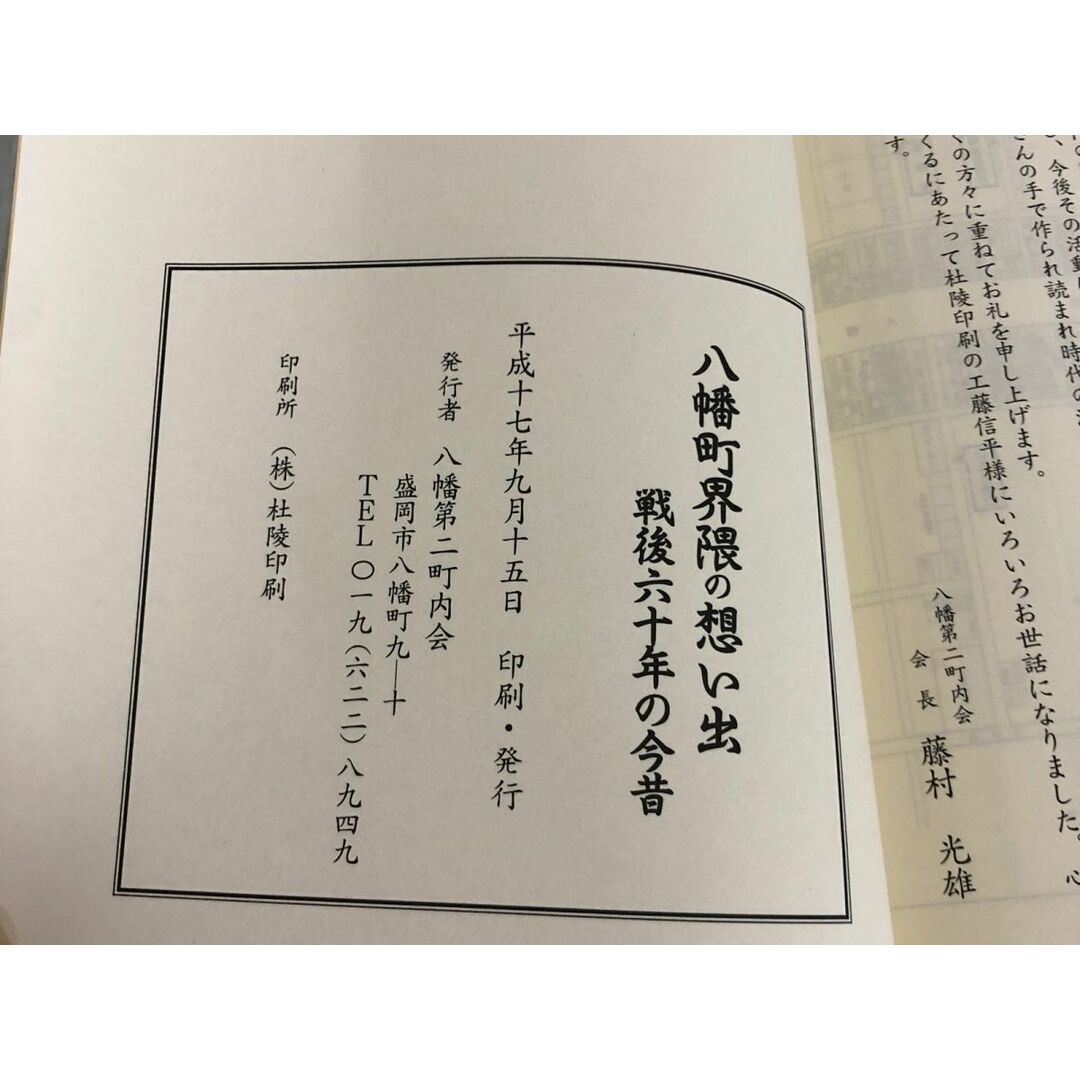 今後その活動
さんの手で作られ読まれ時代の
くの方々に重ねてお礼を申し上げます。
くるにあたって杜陵印刷の工藤信平様にいろいろお世話になりました。心
す。
八幡第二町内会
会長 藤村 光雄
八幡町界隈の想い出
戦後六十年の今昔
平成十七年九月十五日 印刷・発行
発行者 八幡第二町内会
盛岡市八幡町九―十
TEL〇一九(六二二)八九四九
印刷所 (株)杜陵印刷